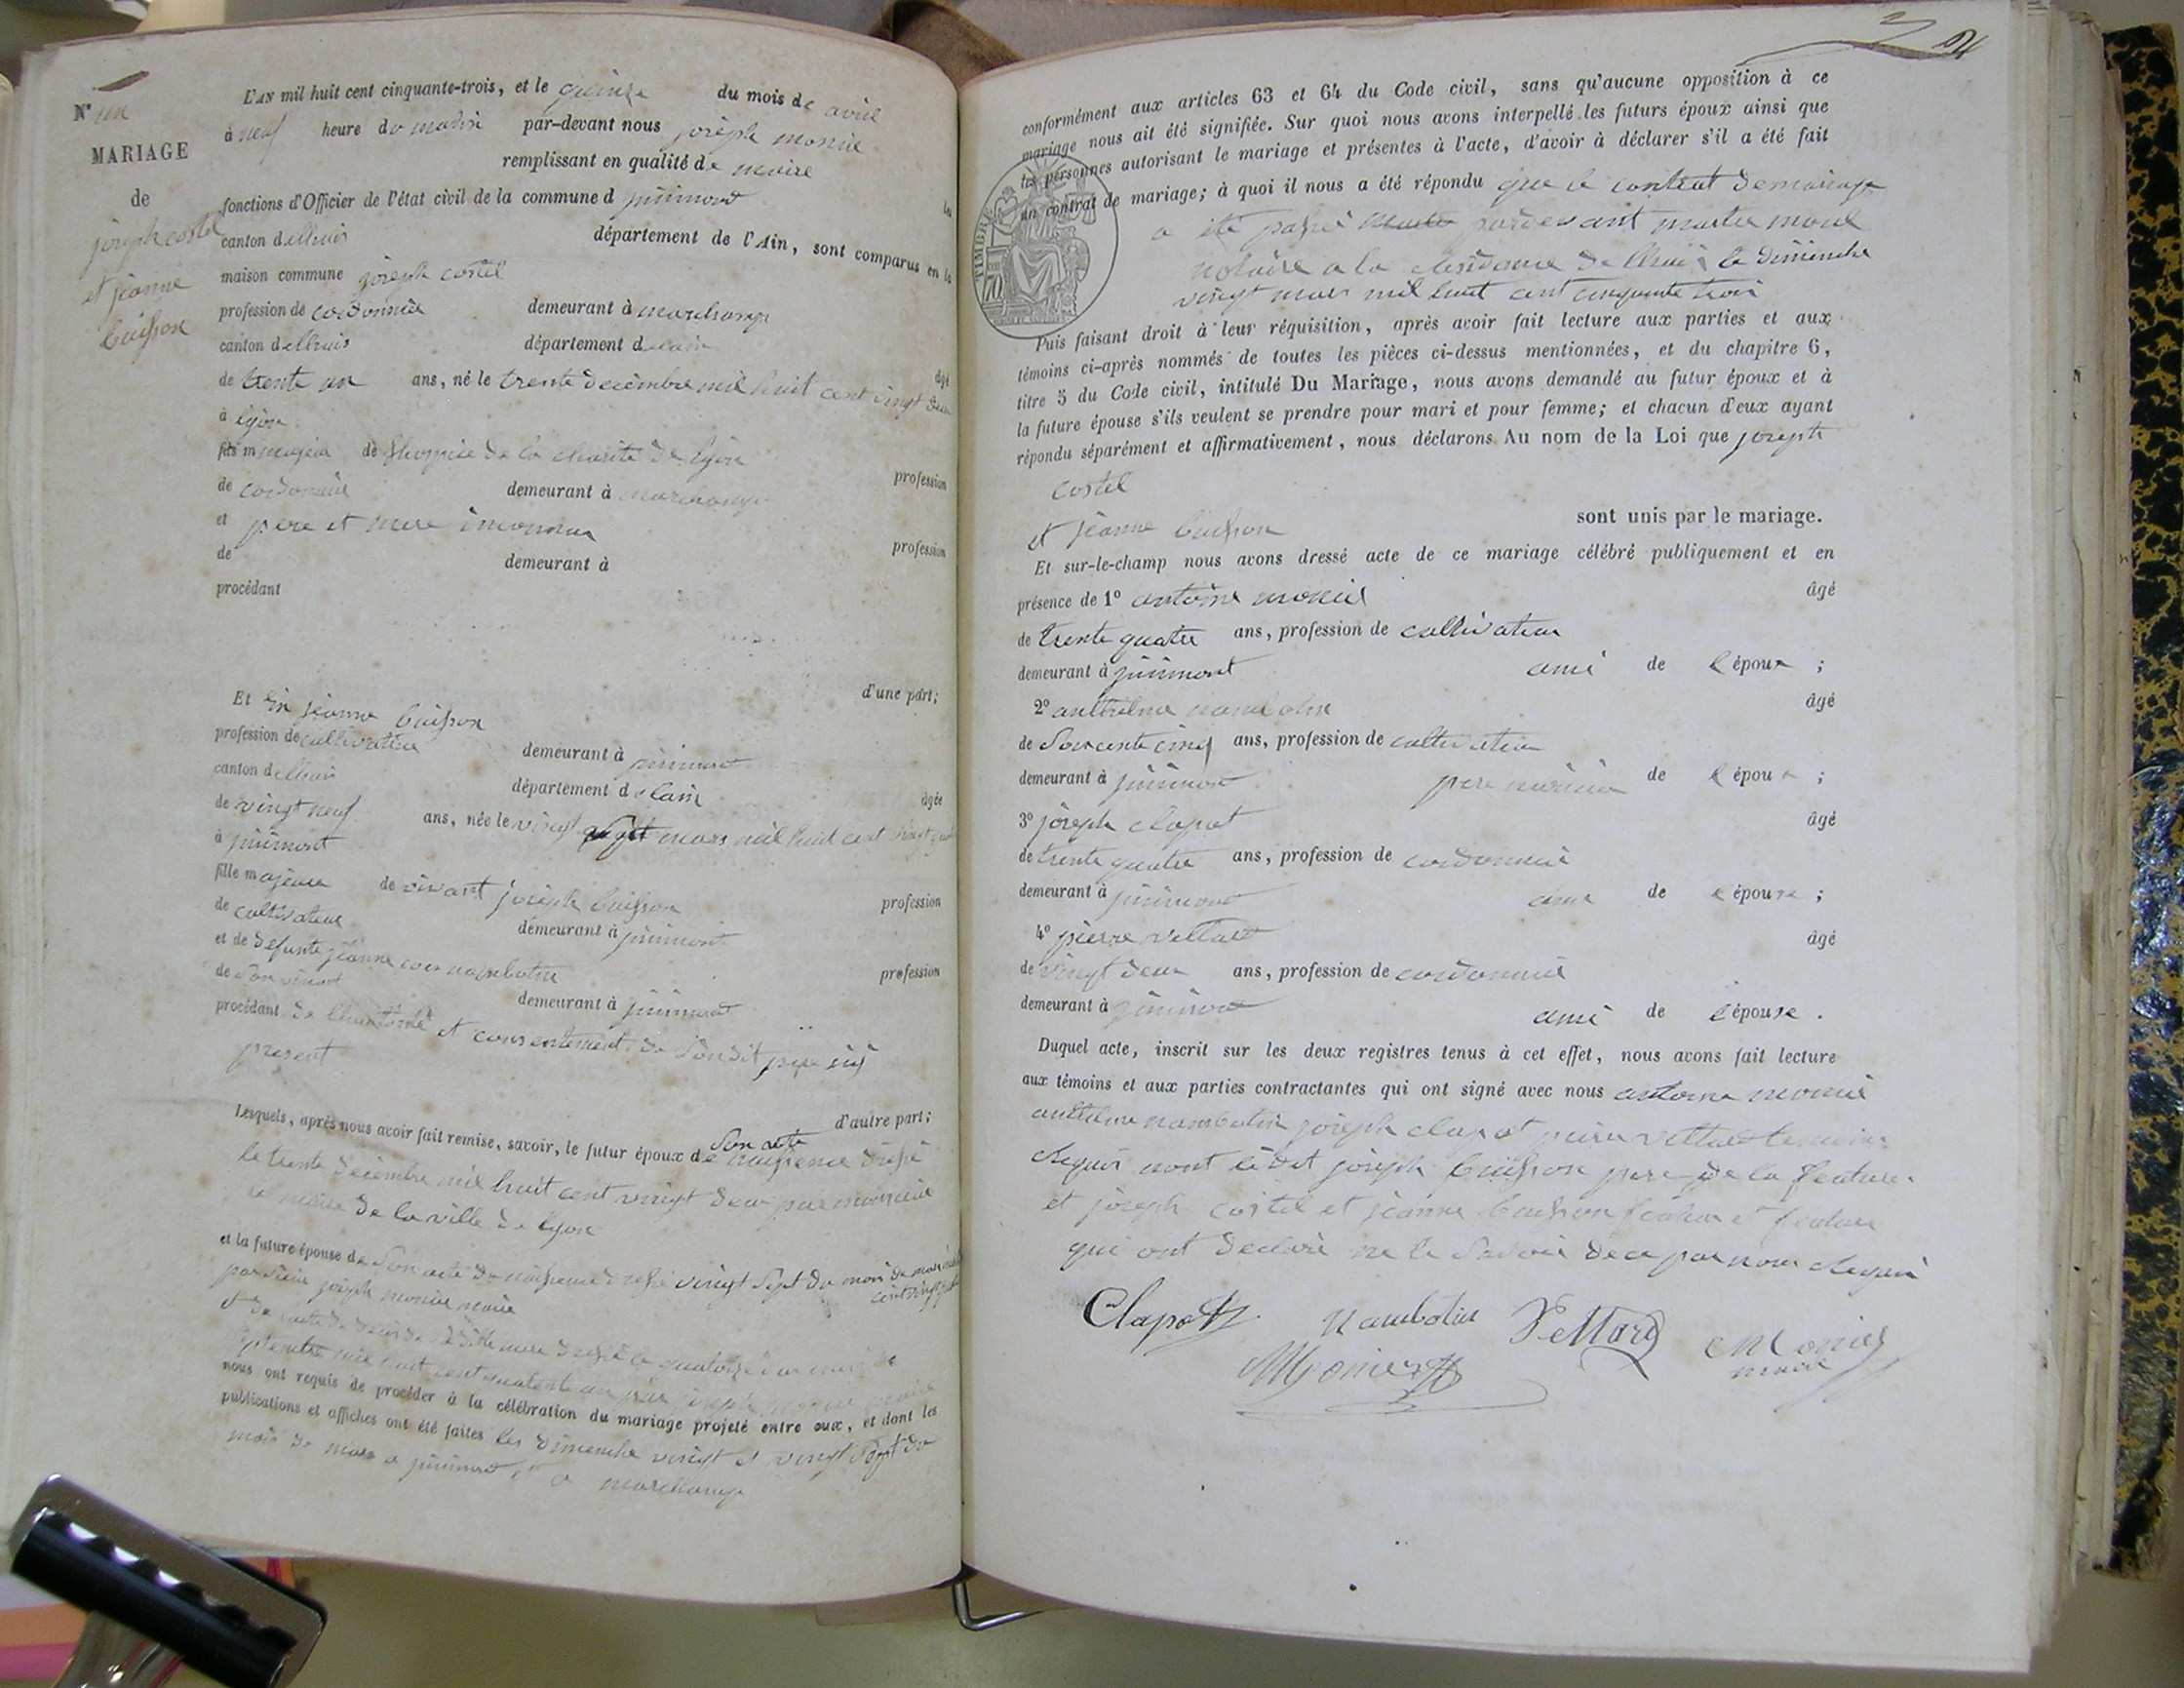 N° un
MARIAGE
de
joseph costel
et jeanne
buisson
L'AN mil huit cent cinquante-trois, et le quinze du mois de avril
à neuf heure du matin par-devant nous joseph monier
remplissant en qualité de maire
fonctions d'Officier de l'état civil de la commune d
canton d'lhuis département de l'Ain, sont comparus en la
maison commune joseph costel
profession de cordonnier demeurant à marchamp
canton d'lhuis département de lain
âgé
de trente un ans, né le trente decembre mil huit cent vingt deux
à lyon
fils majeur de lhospice de la charité de lyon
profession
de cordonnier demeurant à marchamp
et pere et mere inconnus
profession
de demeurant à
procédant
d'une part;
Et jeanne buisson
profession de cultivatrice demeurant à
canton d'lhuis département de lain
âgée
de vingt neuf ans, née le vingt mars mil huit cent vingt
à
fille majeure de vivant joseph buisson
profession
de cultivateur demeurant à
et de defunte jeanne
profession
de son vivant demeurant à
procédant de et consentement de son dit pere ici
present
d'autre part;
Lesquels, après nous avoir fait remise, savoir, le futur époux de son acte de naissance dressé
le trente decembre mil huit cent vingt deux par monsieur
le maire de la ville de lyon
et la future épouse de son acte de naissance dressé vingt sept du mois de mars
par sieur joseph monier maire
et de lacte de deces de sa dite mere dressé le quatorze du mois de
nous ont requis de procéder à la célébration du mariage projeté entre eux, et dont les
publications et affiches ont été faites les dimenche vingt et vingt sept du
mois de mars a et a marchamp
conformément aux articles 63 et 64 du Code civil, sans qu'aucune opposition à ce
mariage nous ait été signifiée. Sur quoi nous avons interpellé les futurs époux ainsi que
les personnes autorisant le mariage et présentes à l'acte, d'avoir à déclarer s'il a été fait
un contrat de mariage; à quoi il nous a été répondu que le contrat de mariage
a été passé pardevant maitre
notaire a la residence de lhuis le dimenche
vingt mars mil huit cent cinquante trois
TIMBRE
70
Puis faisant droit à leur réquisition, après avoir fait lecture aux parties et aux
témoins ci-après nommés de toutes les pièces ci-dessus mentionnées, et du chapitre 6,
titre 5 du Code civil, intitulé Du Mariage, nous avons demandé au futur époux et à
la future épouse s'ils veulent se prendre pour mari et pour femme; et chacun d'eux ayant
répondu séparément et affirmativement, nous déclarons Au nom de la Loi que joseph
costel
sont unis par le mariage.
et jeanne buisson
Et sur-le-champ nous avons dressé acte de ce mariage célébré publiquement et en
présence de 1° antoine monier âgé
de trente quatre ans, profession de cultivateur
demeurant à ami de l'époux ;
2° anthelme nambotin âgé
de soixante cinq ans, profession de cultivateur
demeurant à pere de l'époux ;
3° joseph clapot âgé
de trente quatre ans, profession de cordonnier
demeurant à ami de l'épouse ;
4° pierre vettard âgé
de vingt deux ans, profession de cordonnier
demeurant à ami de l'épouse.
Duquel acte, inscrit sur les deux registres tenus à cet effet, nous avons fait lecture
aux témoins et aux parties contractantes qui ont signé avec nous antoine monier
anthelme nambotin joseph clapot pierre vettard temoins
ledit joseph buisson pere de la future
et joseph costel et jeanne buisson et future
qui ont declaré ne le savoir de ce par nous
Clapot Nambotin Vettard Monier
maire
Monier